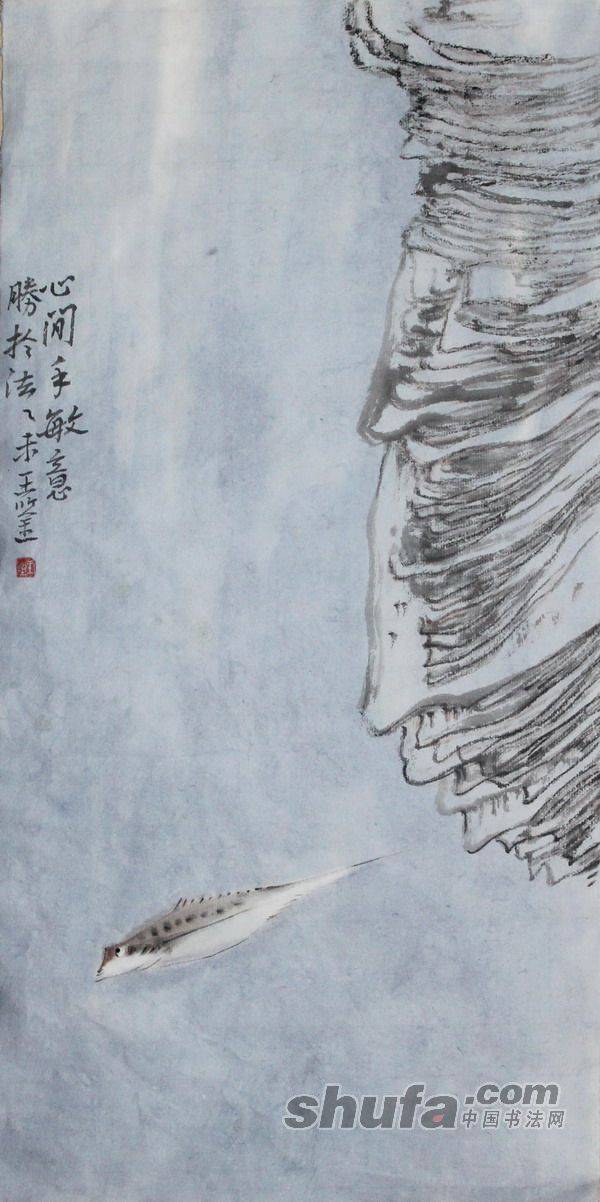 心閒手敏意
勝於法乙未王
shufa.com
中国书法网